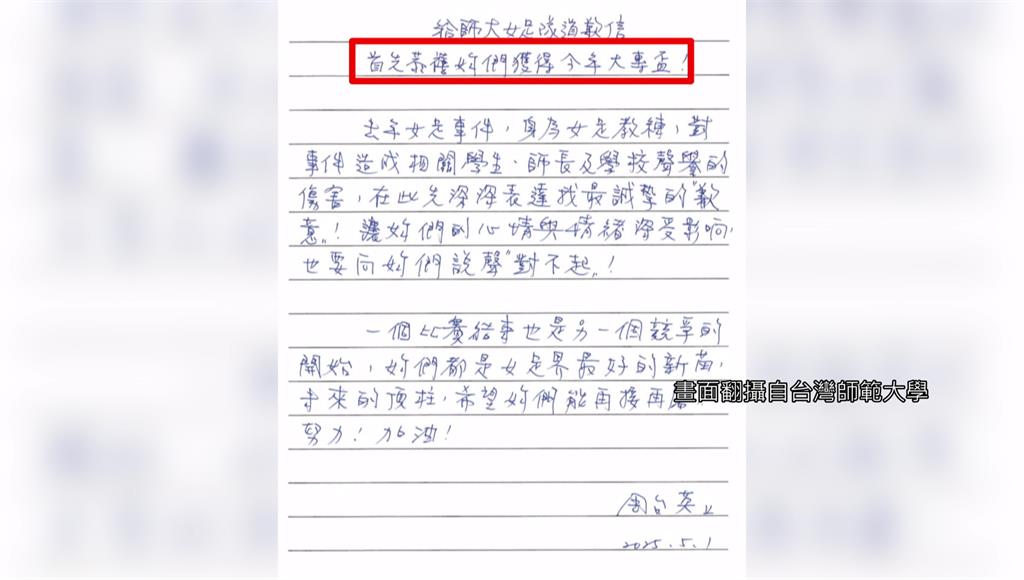 給師大女足成道歉信
首先恭禧妳們獲得今年大專盃！
去年女足事件，身為女足教練，對
事件造成相關學生、師長及學校聲譽的
傷害，在此先深深表達我最誠摯的"歉
意"！讓妳們的心情與情緒深受影响，
也要向妳們說聲"對不起"！
一個比賽結束也是另一個競爭的
開始，妳們都是女足界最好的新苗，
未來的頂柱，希望妳們能再接再
畫面翻攝自台灣師範大學
努力！加油！
周台英
2025.5.1